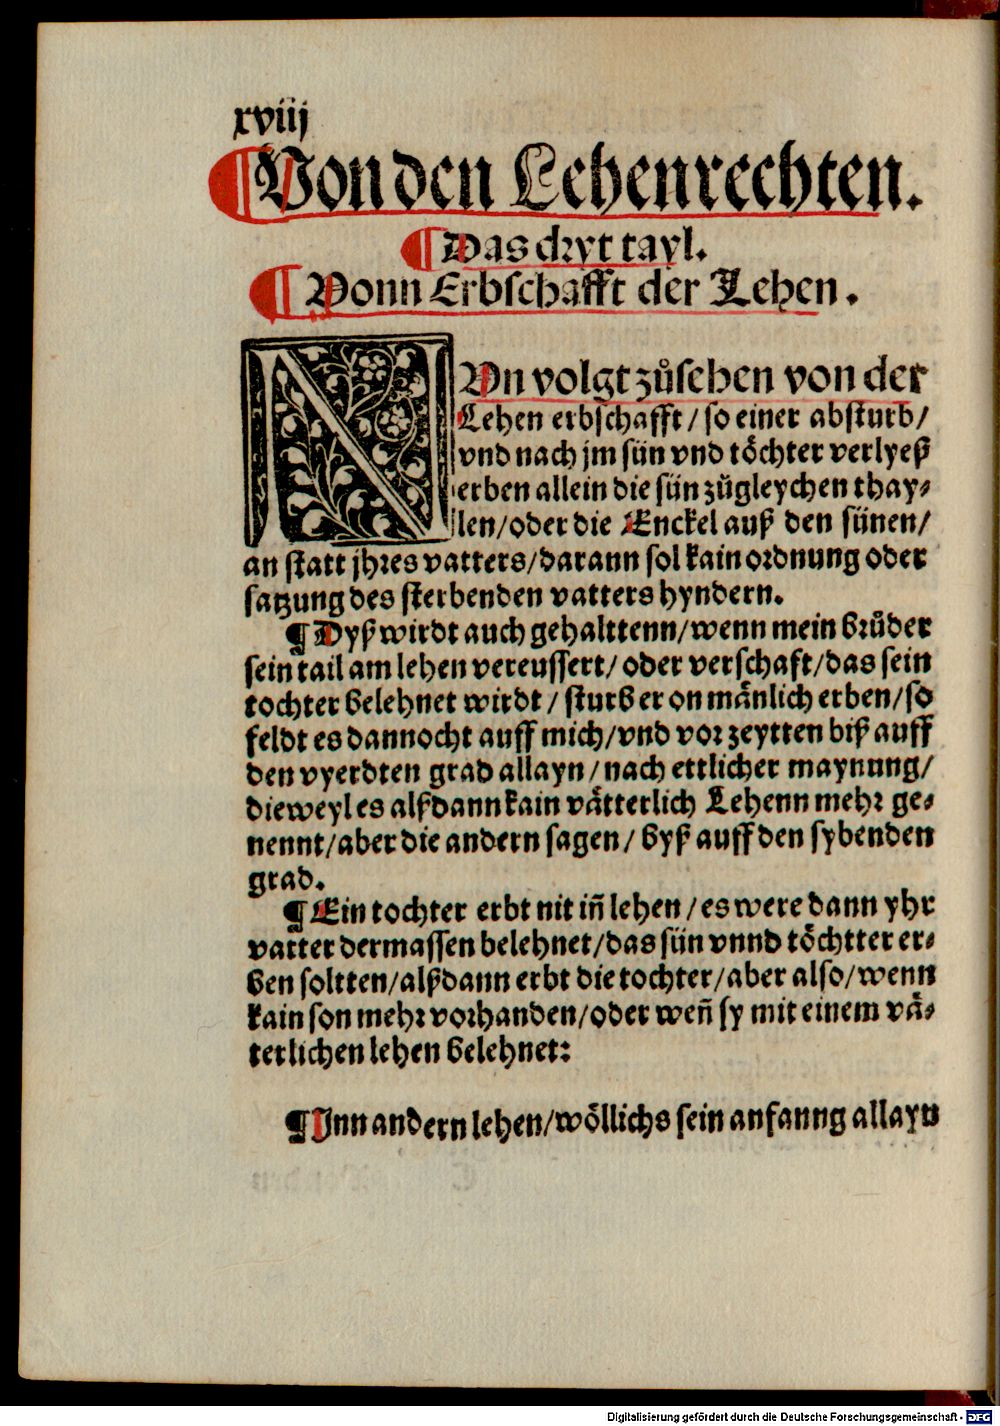 xviij
¶Von den Lehenrechten.
¶Das dryt tayl.
¶Vonn Erbschafft der Lehen.
NVn volgt zůsehen von der
Lehen erbschafft/ so einer absturb/
vnd nach jm sün vnd töchter verlyeß
erben allein die sün zůgleychen thay⸗
len/ oder die Enckel auß den sünen/
an statt jhres vatters/ darann sol kain ordnung oder
satzung des sterbenden vatters hyndern.
¶Dyß wirdt auch gehalttenn/ wenn mein brůder
sein tail am lehen vereussert/ oder verschaft/ das sein
tochter belehnet wirdt/ sturb er on mänlich erben/ so
feldt es dannocht auff mich/ vnd vor zeytten biß auff
den vyerdten grad allayn/ nach ettlicher maynung/
dieweyl es alßdann kain vätterlich Lehenn mehr ge⸗
nennt/ aber die andern sagen/ byß auff den sybenden
grad.
¶Ein tochter erbt nit iñ lehen/ es were dann yhr
vatter dermassen belehnet/ das sün vnnd töchtter er⸗
ben soltten/ alßdann erbt die tochter/ aber also/ wenn
kain son mehr vorhanden/ oder weñ sy mit einem vä⸗
terlichen lehen belehnet:
¶Inn andern lehen/ wöllichs sein anfanng allayn
Digitalisierung gefördert durch die Deutsche Forschungsgemeinschaft - DFG